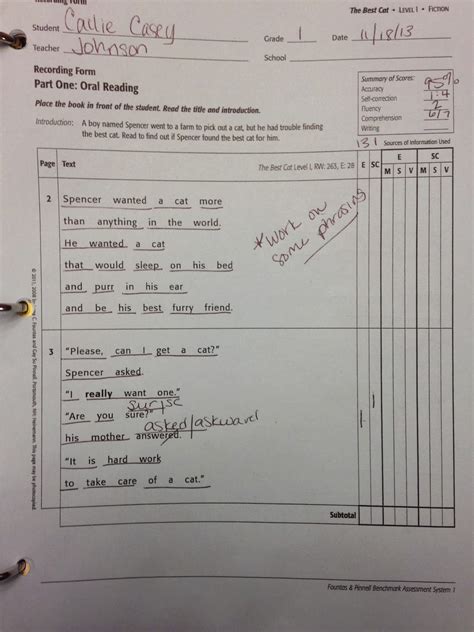 Recording Form
The Best Cat • LEVEL I • FICTION
Student Callie Casey
Grade 1 Date 11/18/13
Teacher Johnson
School
Recording Form
Part One: Oral Reading
Place the book in front of the student. Read the title and introduction.
Introduction: A boy named Spencer went to a farm to pick out a cat, but he had trouble finding
the best cat. Read to find out if Spencer found the best cat for him.
Summary of Scores:
Accuracy 95%
Self-correction 1:4
Fluency 2
Comprehension 6/7
Writing
13 1 Sources of Information Used
Page Text The Best Cat Level I, RW: 263, E: 28 E SC E SC
M S V M S V
2 Spencer wanted a cat more
than anything in the world.
He wanted a cat
that would sleep on his bed
and purr in his ear
and be his best furry friend.
*Work on
some phrasing
3 "Please, can I get a cat?"
Spencer asked.
"I really want one."
sur|sc
"Are you sure?"
asked/askward
his mother answered.
"It is hard work
to take care of a cat."
Subtotal
Fountas & Pinnell Benchmark Assessment System 1